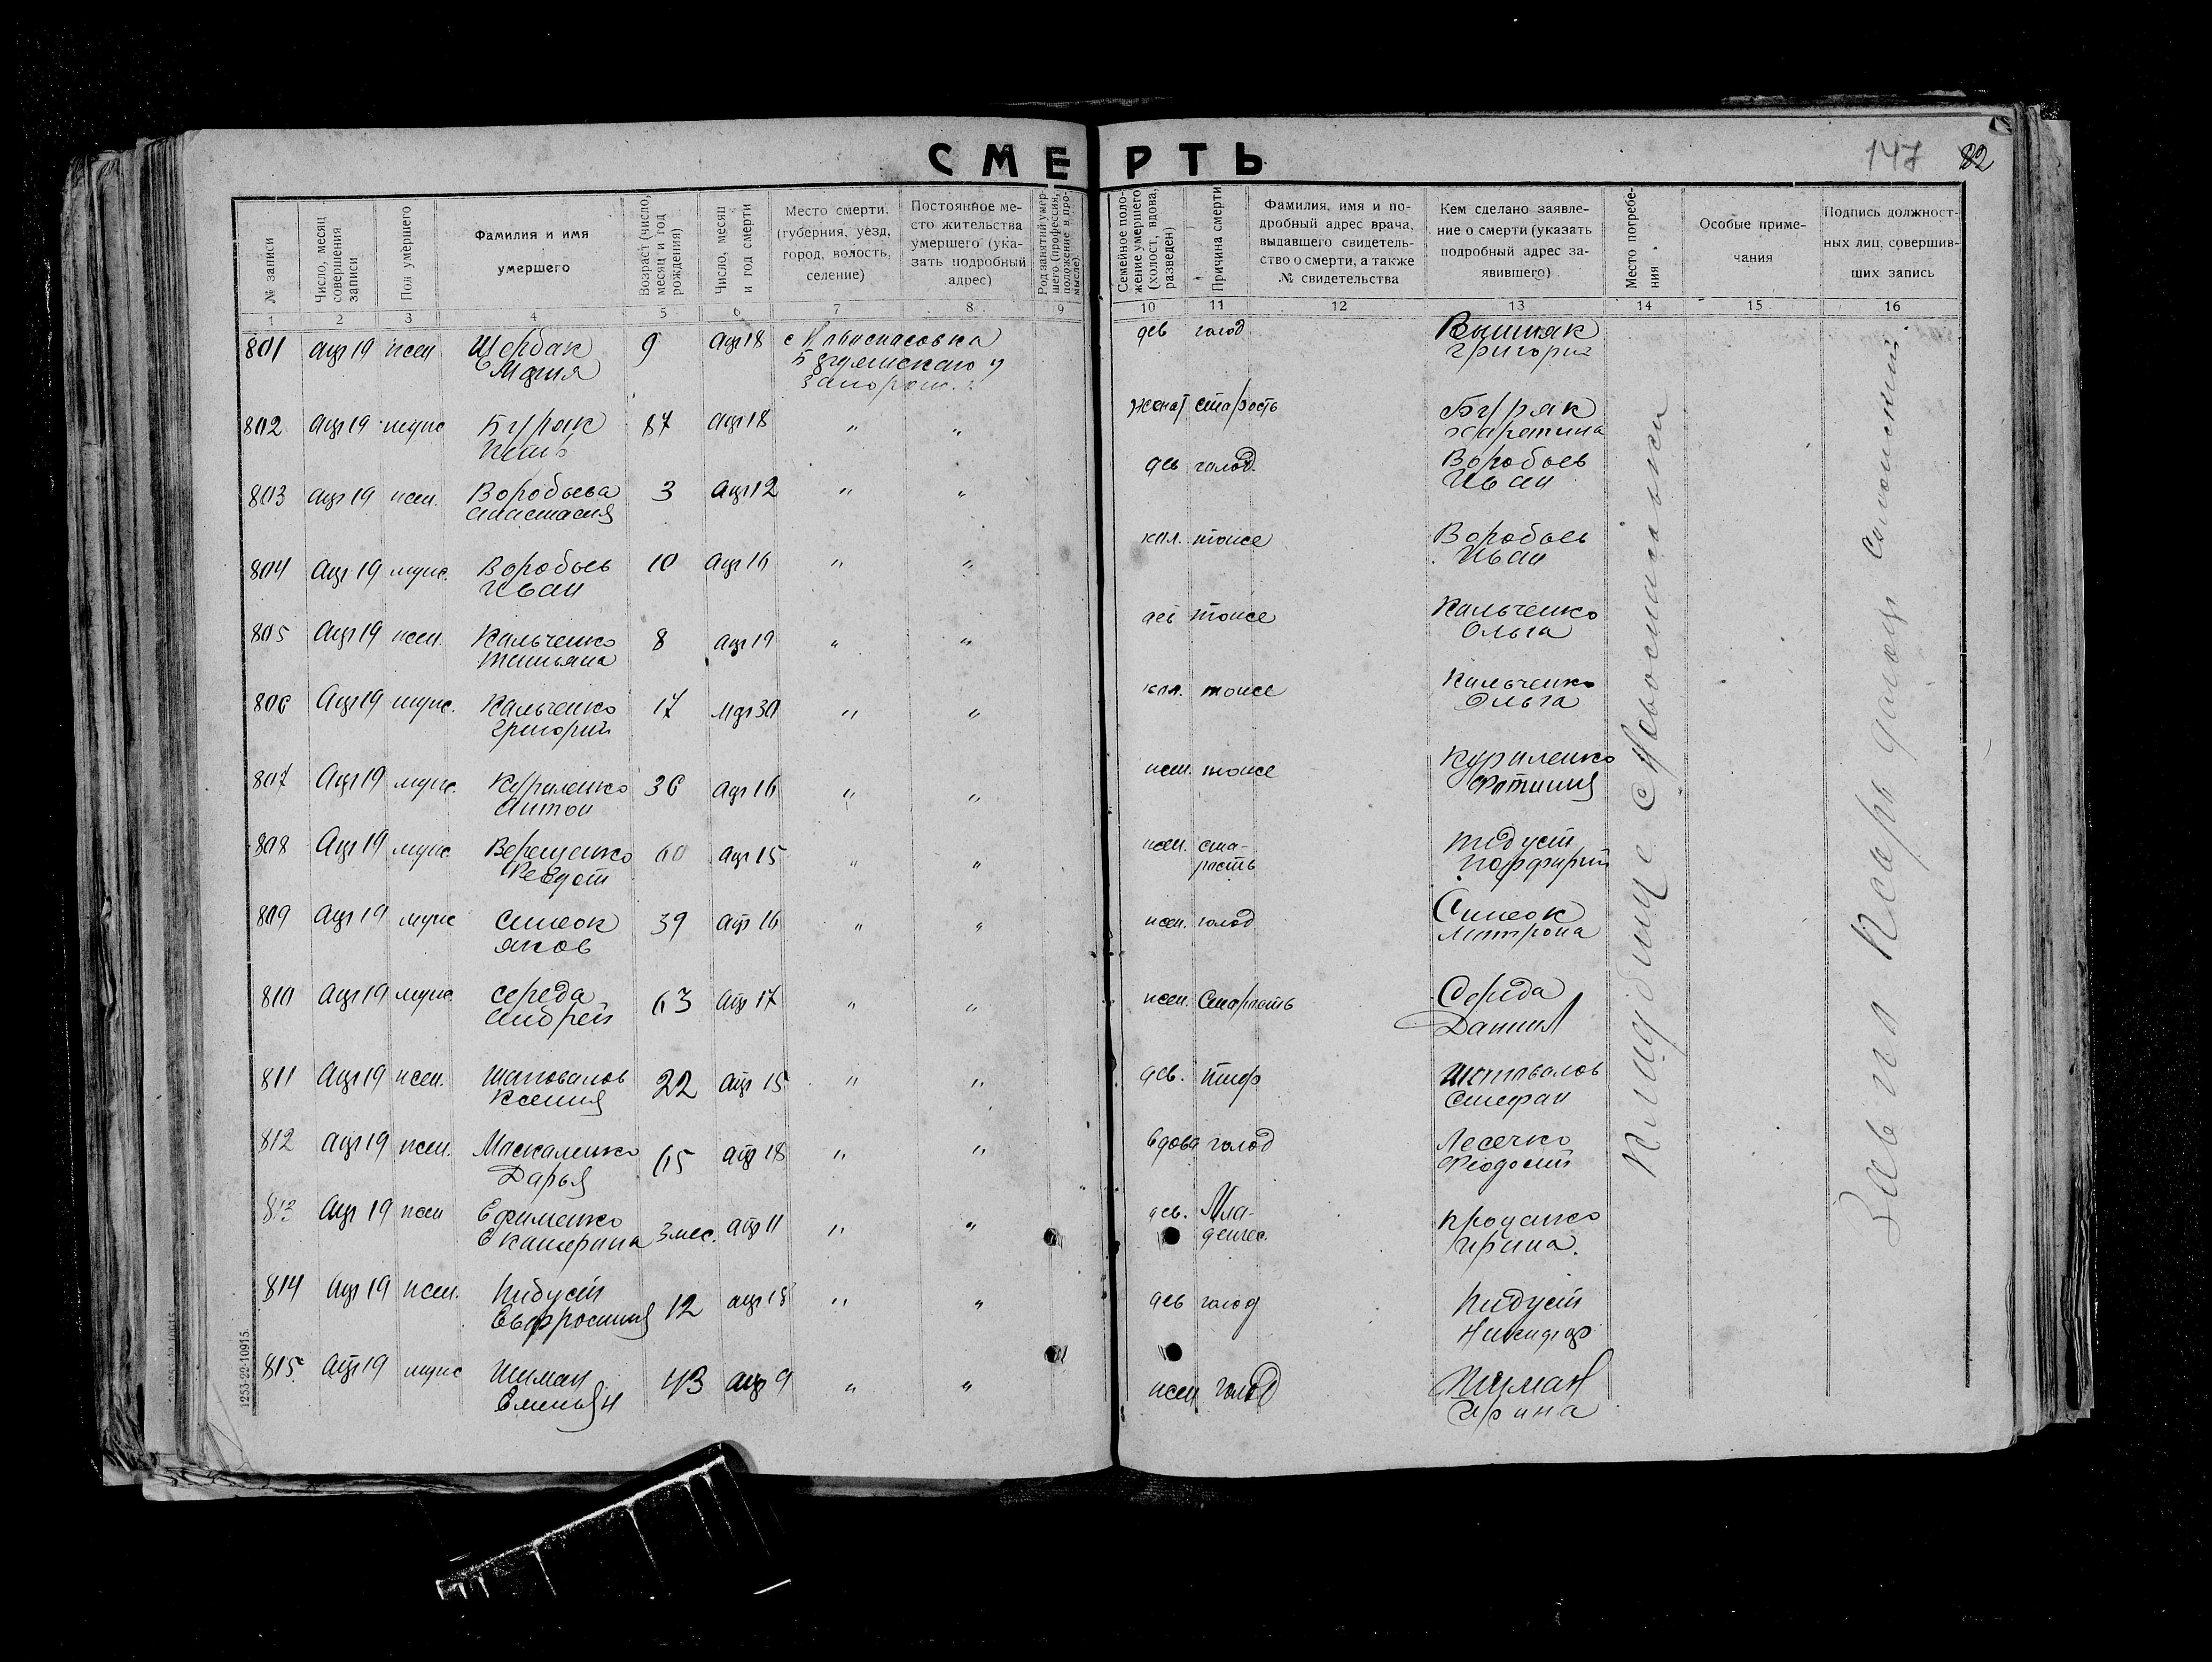 СМЕРТЬ
147 82
№ записи
Число, месяц совершения записи
Пол умершего
Фамилия и имя умершего
Возраст (число, месяц и год рождения)
Число, месяц и год смерти
Место смерти. (губерния, уезд, город, волость, селение)
Постоянное место жительства умершего (указать подробный адрес)
Род занятий умершего (профессия, положение в промысле)
Семейное положение умершего (холост, вдова, разведен)
Причина смерти
Фамилия, имя и подробный адрес врача, выдавшего свидетельство о смерти, а также № свидетельства
Кем сделано заявление о смерти (указать подробный адрес заявившего)
Место погребения
Особые примечания
Подпись должностных лиц, совершивших запись
1 2 3 4 5 6 7 8 9 10 11 12 13 14 15 16
801 апр 19 жен Щербак Мария 9 апр 18 с Новоспасовка дев голод Григорий
802 апр 19 муж Буряк 87 апр 18 " " женат старость Буряк
803 апр 19 жен. Воробьева Анастасия 3 апр 12 " " дев голод. Воробьев Иван
804 апр 19 муж. Воробьев Иван 10 апр 16 " " хол. тоже Воробьев Иван
805 апр 19 жен. Кальченко Татьяна 8 апр 19 " " дев тоже Кальченко Ольга
806 апр 19 муж. Кальченко Григорий 17 мар 30 " " хол. тоже Кальченко Ольга
807 апр 19 муж. Куриленко Антон 36 апр 16 " " жен. тоже Куриленко Фотиния
808 апр 19 муж. 60 апр 15 " " жен. старость Порфирий
809 апр 19 муж Синеок Яков 39 апр 16 " " жен. голод Синеок
810 апр 19 муж Середа Андрей 63 апр 17 " " жен. Старость Середа Даниил
811 апр 19 жен. Шаповалов Ксения 22 апр 15 " " дев. тиф Шаповалов Стефан
812 апр 19 жен. Маскаленко Дарья 65 апр 18 " " вдова голод Лесечко
813 апр 19 жен Ефименко Екатерина 3 мес. апр 11 " " дев. Младенчес. Проценко Ирина.
814 апр 19 жен. Пидуст Евфросиния 12 апр " " дев голод Пидуст Никифор
815 апр 19 муж Шиман Емельян 43 апр 9 " " жен голод Шиман Ирина
Кладбище с Новоспасовки
Писарь
1253-22-10915.